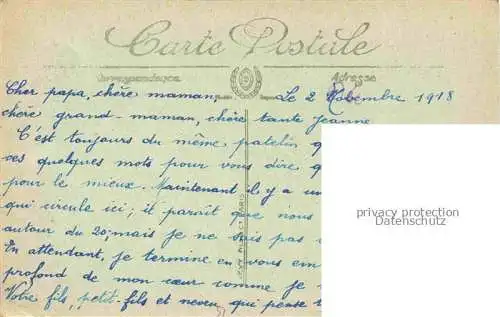 Carte Postale
Correspondance
Adresse
Cher papa, chère maman,
Le 2 Novembre 1918
chère grand-maman, chère tante Jeanne
C'est toujours du même patelin q
ces quelques mots pour vous dire q
pour le mieux. Maintenant il y a un
qui circule ici; il paraît que nous
autour du 20; mais je ne sais pas
En attendant, je termine en vous em
profond de mon cœur comme je
Votre fils, petit-fils et neveu qui pense t
privacy protection
Datenschutz